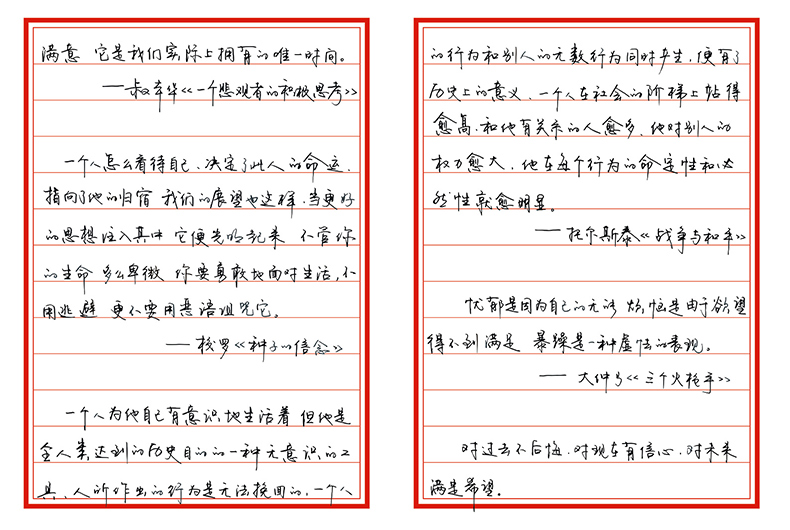 满意 它是我们实际上拥有的唯一时间。
——叔本华《一个悲观者的积极思考》
一个人怎么看待自己、决定了此人的命运,
指向了他的归宿 我们的展望也这样,当更好
的思想注入其中 它便光明起来 不管你
的生命多么卑微 你要勇敢地面对生活,不
用逃避 更不要用恶语诅咒它。
——梭罗《种子的信念》
一个人为他自己有意识地生活着 但他是
全人类达到的历史目的的一种无意识的工
具、人所作出的行为是无法挽回的,一个人
的行为和别人的无数行为同时产生,便有了
历史上的意义、一个人在社会的阶梯上站得
愈高,和他有关系的人愈多,他对别人的
权力愈大,他在每个行为的命定性和必
然性就愈明显。
——托尔斯泰《战争与和平》
忧郁是因为自己的无能 烦恼是由于欲望
得不到满足 暴躁是一种虚怯的表现。
——大仲马《三个火枪手》
对过去不后悔,对现在有信心,对未来
满是希望。